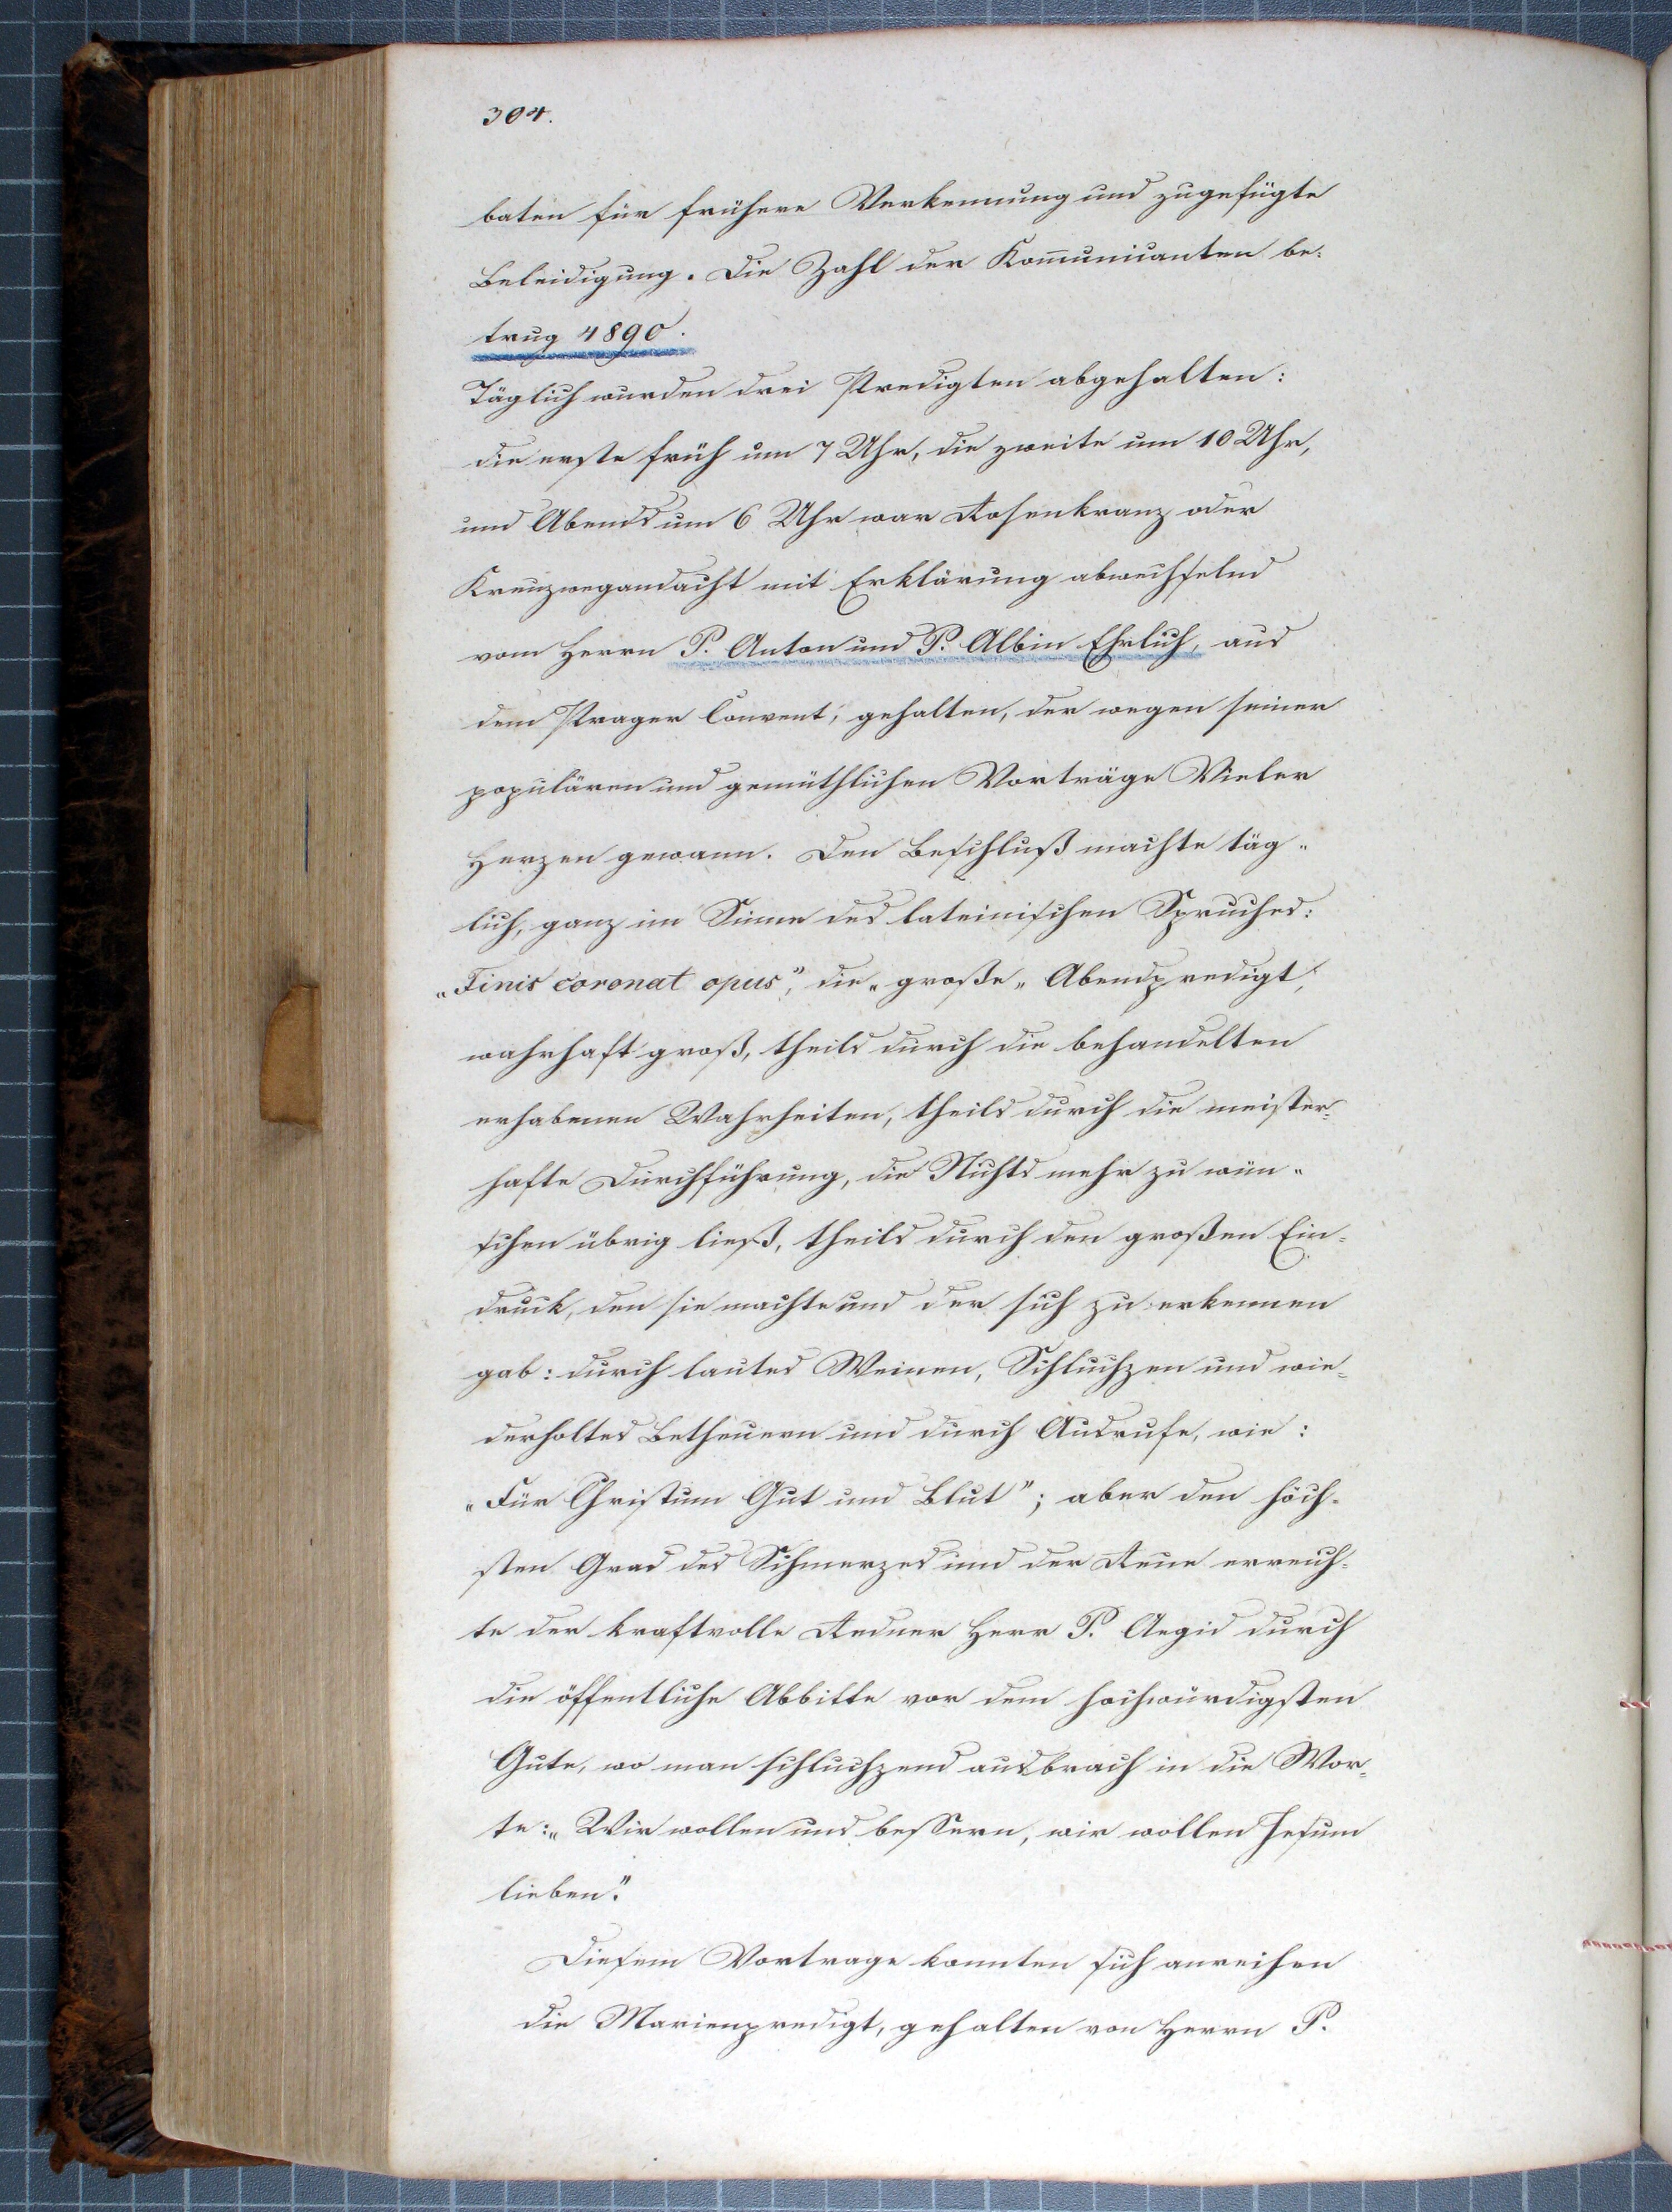 304.
baten für frühere Verkennung und zugefügte
Beleidigung. Die Zahl der Kom̅unicanten be-
trug 4890.
Täglich wurden drei Predigten abgehalten:
die erste früh um 7 Uhr, die zweite um 10 Uhr,
und Abends um 6 Uhr war Rosenkranz oder
Kreuzwegandacht mit Erklärung abwechselnd
vom Herrn P. Anton und P. Albin Ehrlich, aus
dem Prager Convent, gehalten, der wegen seiner
populären und gemüthlichen Vorträge Vieler
Herzen gewann. Den Beschluß machte täg-
lich, ganz im Sinne des lateinischen Spruches:
„Finis coronat opus", die „große" Abendpredigt,
wahrhaft groß, theils durch die behandelten
erhabenen Wahrheiten, theils durch die meister-
hafte Durchführung, die Nichts mehr zu wün-
schen übrig ließ, theils durch den großen Ein-
druck, den sie machte und der sich zu erkennen
gab: durch lautes Weinen, Schluchzen und wie-
derholtes Betheuern und durch Ausrufe, wie:
„Für Christum Gut und Blut"; aber den höch-
sten Grad des Schmerzes und der Reue erreich-
te der kraftvolle Redner Herr P. Aegid durch
die öffentliche Abbitte vor dem hochwürdigsten
Gute, wo man schluchzend ausbrach in die Wor-
te: „Wir wollen uns bessern, wir wollen Jesum
lieben".
Diesem Vortrage konnten sich anreihen
die Marienpredigt, gehalten von Herrn P.